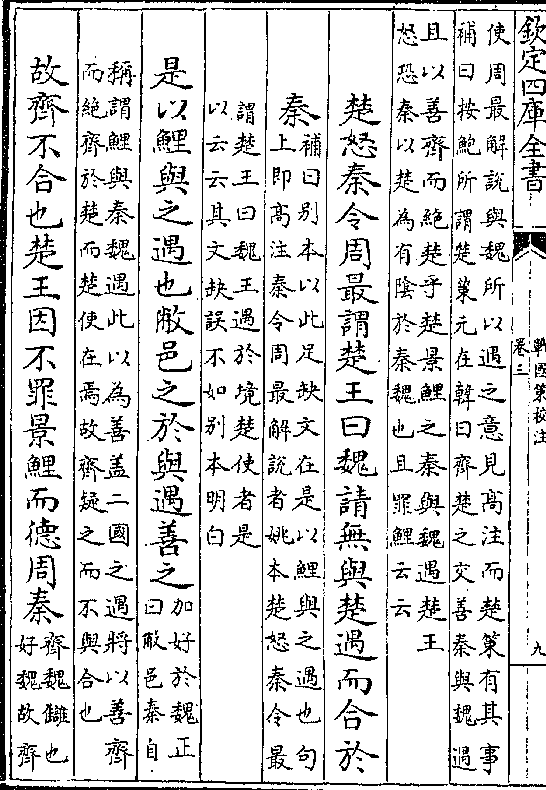 欽定四庫全書
戰國策校注
卷三
九
使周最解説與魏所以遇之意見髙注而楚策有其事
補曰按鮑所謂楚策元在韓曰齊楚之交善秦與魏遇
且以善齊而絶楚乎楚景鯉之秦與魏遇楚王
怒恐秦以楚為有隂於秦魏也且罪鯉云云
楚怒秦令周最謂楚王曰魏請無與楚遇而合於
秦補曰别本以此足缺文在是以鯉與之遇也句
上即髙注秦令周最解説者姚本楚怒秦令最
謂楚王曰魏王遇於境楚使者是
以云云其文缺誤不如别本明白
是以鯉與之遇也敝邑之於與遇善之加好於魏正
曰敝邑秦自
稱謂鯉與秦魏遇此以為善盖二國之遇將以善齊
而絶齊於楚而楚使在焉故齊疑之而不與合也
故齊不合也楚王因不罪景鯉而德周秦齊魏讎也
好魏故齊